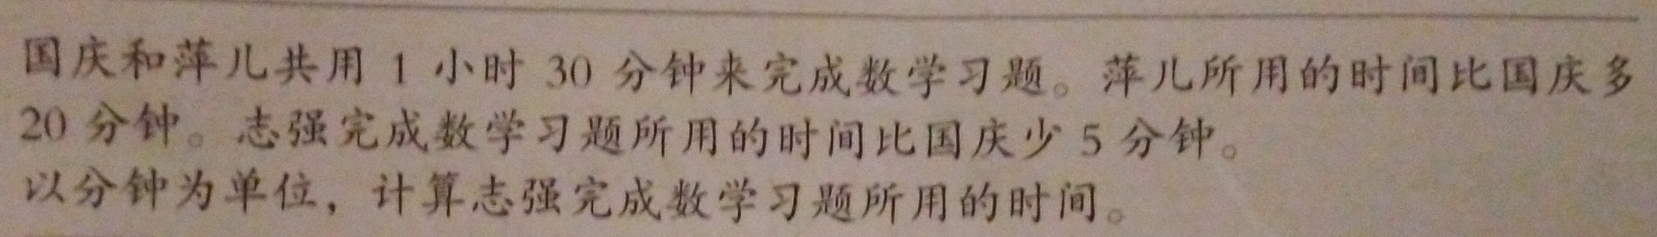 国庆和萍儿共用 1 小时 30 分钟来完成数学习题。萍儿所用的时间比国庆多
20 分钟。志强完成数学习题所用的时间比国庆少 5 分钟。
以分钟为单位，计算志强完成数学习题所用的时间。